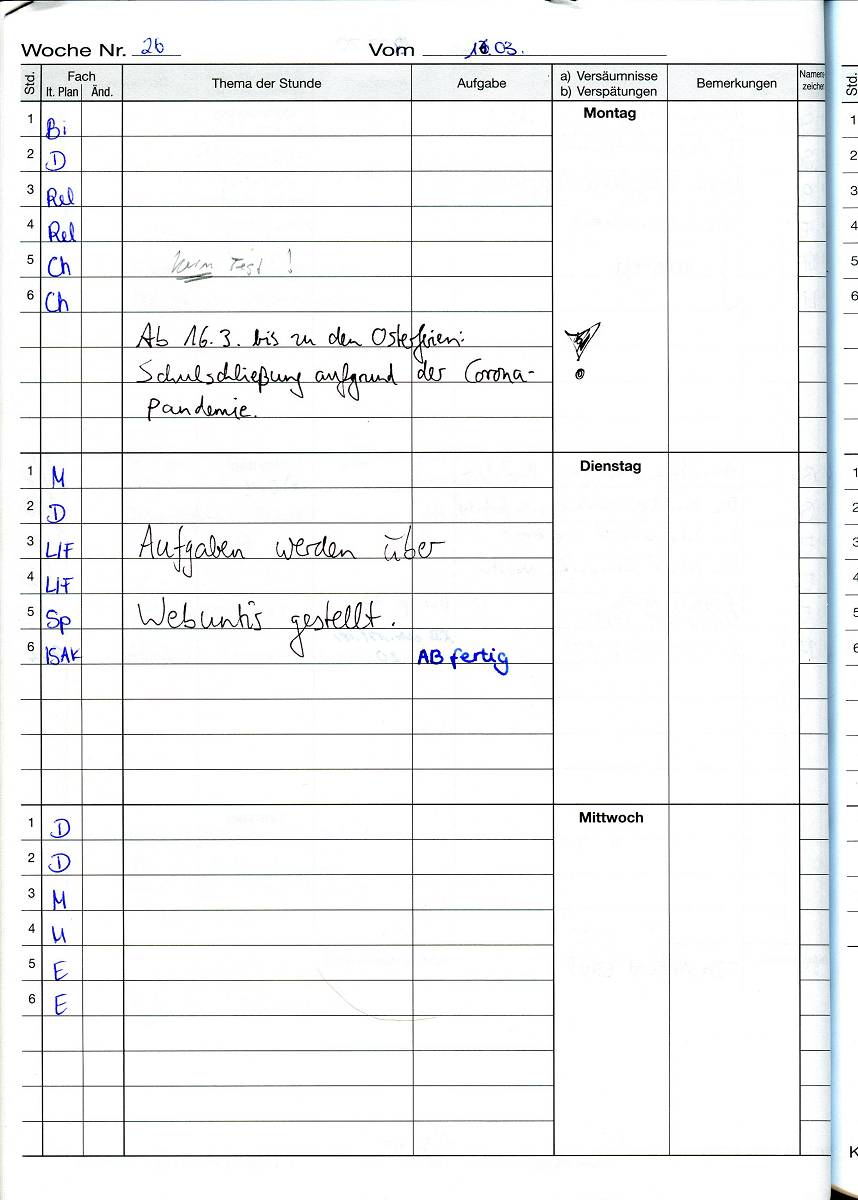 Woche Nr. 26 Vom 16.03.
Std. Fach Thema der Stunde Aufgabe a) Versäumnisse Bemerkungen Namen-
lt. Plan Änd. b) Verspätungen zeichen
Montag
1 Bi
2 D
3 Rel
4 Rel
5 Ch kein Test !
6 Ch
Ab 16.3. bis zu den Osterferien:
Schulschließung aufgrund der Corona-
Pandemie.
Dienstag
1 M
2 D
3 LIF Aufgaben werden über
4 LIF
5 Sp Webuntis gestellt.
6 ISAK AB fertig
Mittwoch
1 D
2 D
3 M
4 M
5 E
6 E
Std.
1
2
3
4
5
6
1
2
3
4
5
6
K